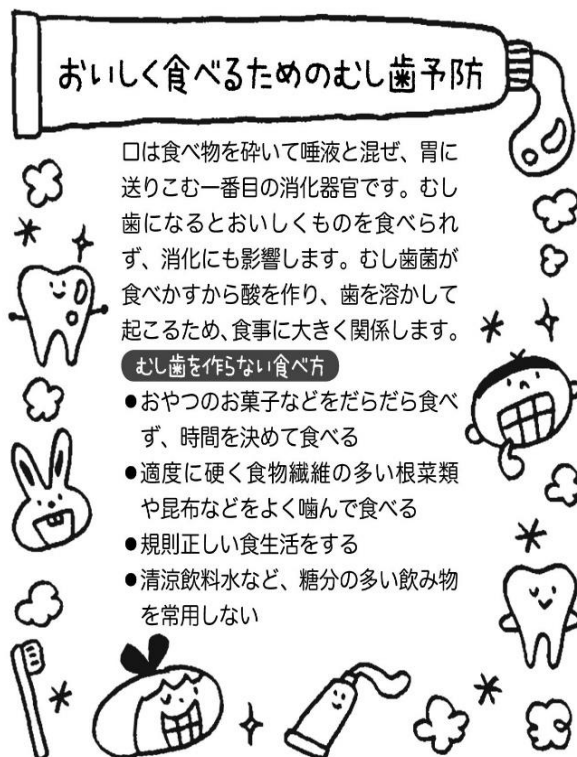 おいしく食べるためのむし歯予防
口は食べ物を砕いて唾液と混ぜ、胃に
送りこむ一番目の消化器官です。むし
歯になるとおいしくものを食べられ
ず、消化にも影響します。むし歯菌が
食べかすから酸を作り、歯を溶かして
起こるため、食事に大きく関係します。
むし歯を作らない食べ方
●おやつのお菓子などをだらだら食べ
ず、時間を決めて食べる
●適度に硬く食物繊維の多い根菜類
や昆布などをよく噛んで食べる
●規則正しい食生活をする
●清涼飲料水など、糖分の多い飲み物
を常用しない